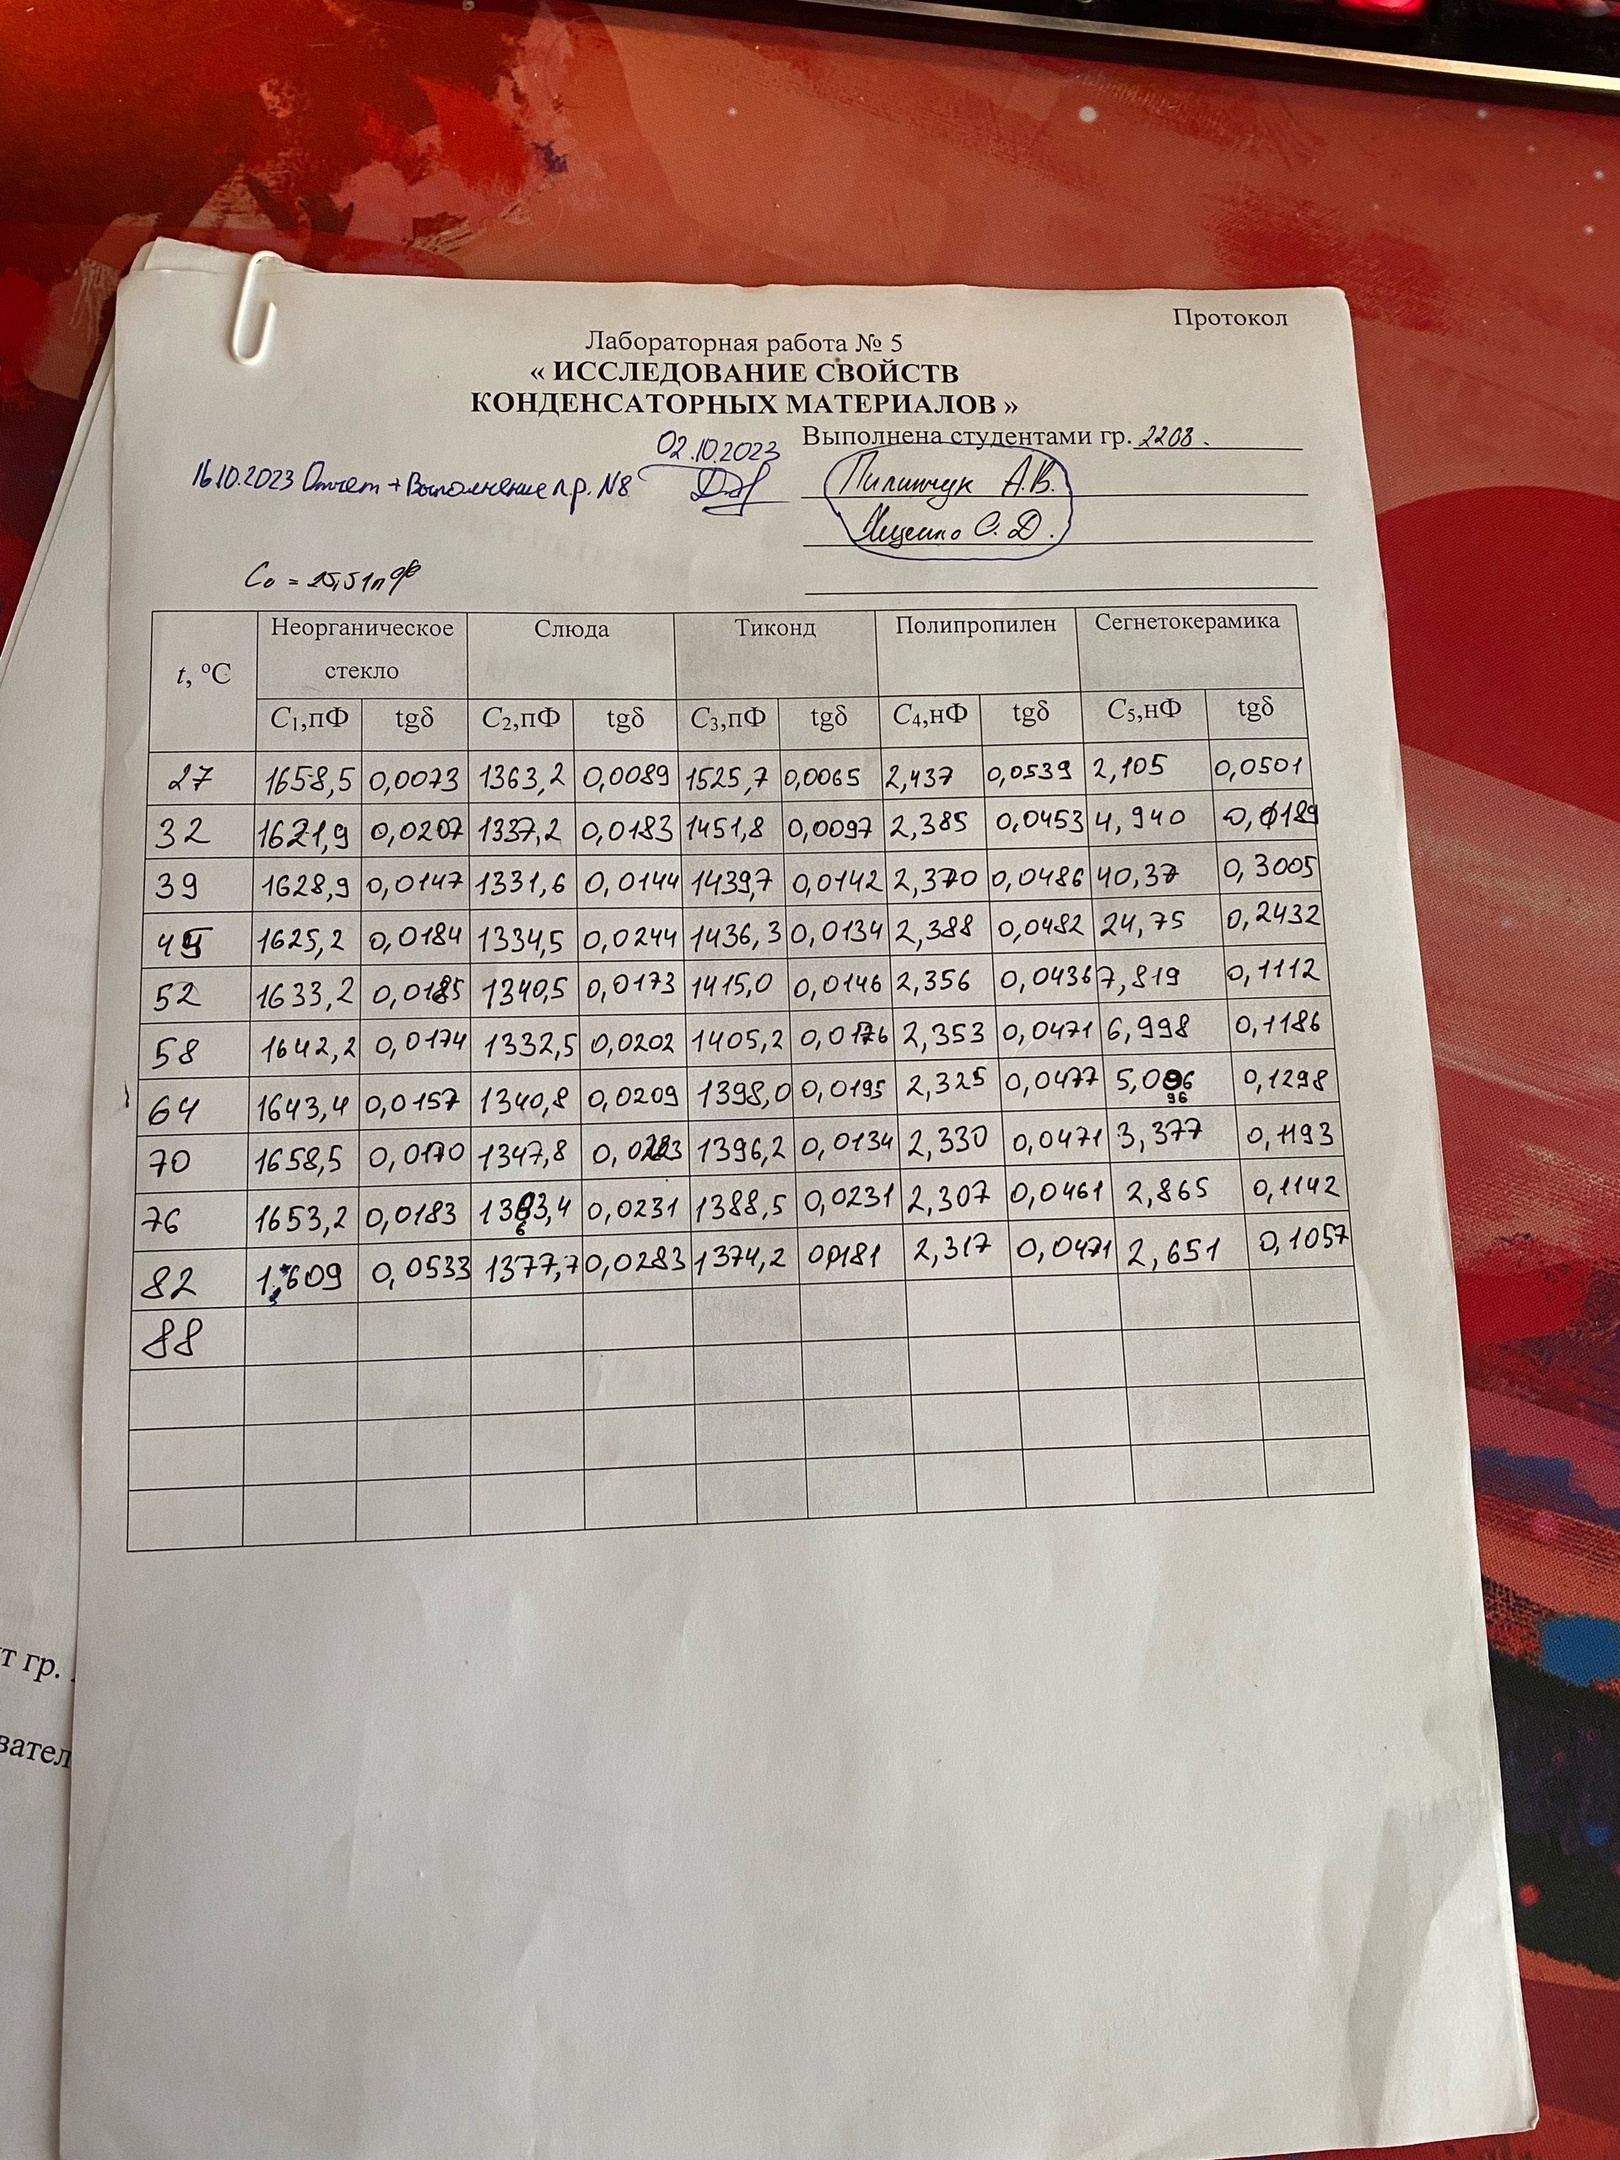 Протокол
Лабораторная работа № 5
« ИССЛЕДОВАНИЕ СВОЙСТВ
КОНДЕНСАТОРНЫХ МАТЕРИАЛОВ »
02.10.2023 Выполнена студентами гр. 2208.
16.10.2023 Отчет + Выполнение л.р. №8 Пилипчук А.В.
Ященко С.Д.
C₀ = 25,51 пФ
t, °С Неорганическое стекло Слюда Тиконд Полипропилен Сегнетокерамика
C₁,пФ tgδ C₂,пФ tgδ C₃,пФ tgδ C₄,нФ tgδ C₅,нФ tgδ
27 1658,5 0,0073 1363,2 0,0089 1525,7 0,0065 2,437 0,0539 2,105 0,0501
32 1621,9 0,0207 1337,2 0,0183 1451,8 0,0097 2,385 0,0453 4,940 0,0189
39 1628,9 0,0147 1331,6 0,0144 1439,7 0,0142 2,370 0,0486 40,37 0,3005
45 1625,2 0,0184 1334,5 0,0244 1436,3 0,0134 2,388 0,0482 24,75 0,2432
52 1633,2 0,0185 1340,5 0,0173 1415,0 0,0146 2,356 0,0436 7,819 0,1112
58 1642,2 0,0174 1332,5 0,0202 1405,2 0,0176 2,353 0,0471 6,998 0,1186
64 1643,4 0,0157 1340,8 0,0209 1398,0 0,0195 2,325 0,0477 5,096 0,1298
96
70 1658,5 0,0170 1347,8 1396,2 0,0134 2,330 0,0471 3,377 0,1193
76 1653,2 0,0183 1363,4 0,0231 1388,5 0,0231 2,307 0,0461 2,865 0,1142
6
82 1,609 0,0533 1377,7 0,0283 1374,2 0,0181 2,317 0,0471 2,651 0,1057
88
т гр.
вател